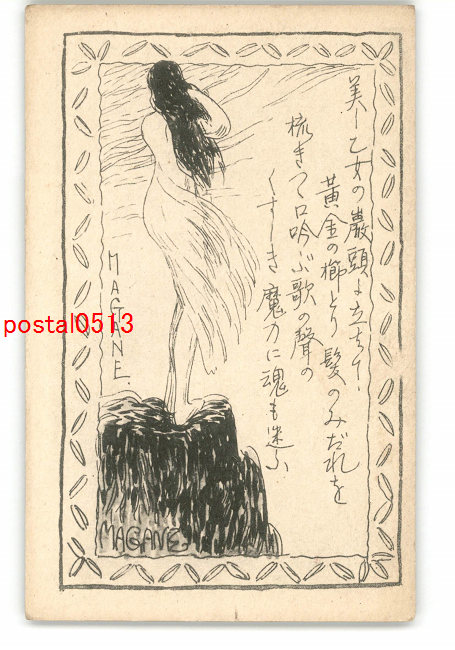 美し乙女の巌頭に立ちて、
黄金の櫛とり髪のみだれを
梳きつゝ口吟ぶ歌の聲の
くすしき魔力に魂も迷ふ
MAGANE.
postal0513
MAGANE